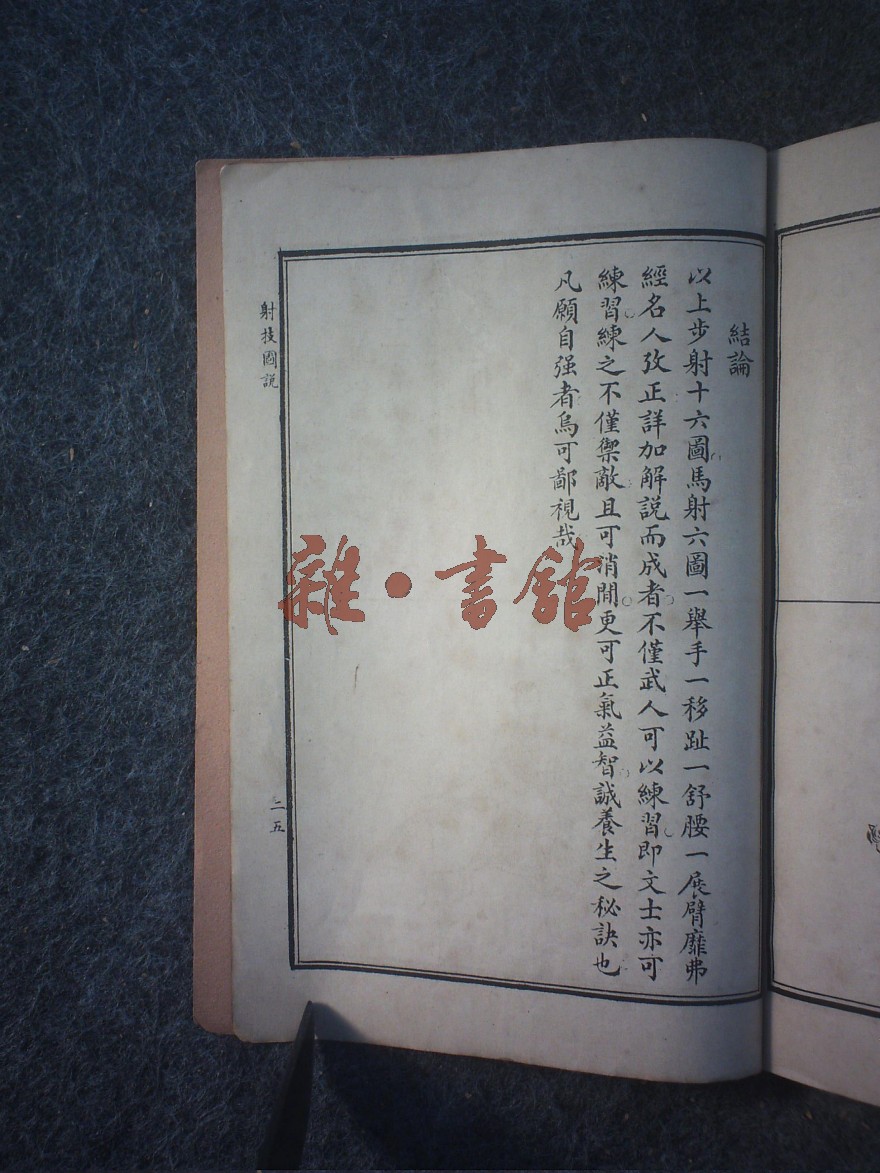 結論
以上步射十六圖馬射六圖一舉手一移趾一舒腰一展臂靡弗
經名人攷正詳加解説而成者不僅武人可以練習即文士亦可
練習練之不僅禦敵且可消閒更可正氣益智誠養生之秘訣也
凡願自强者烏可鄙視哉
射技圖説
二五
雜·書館